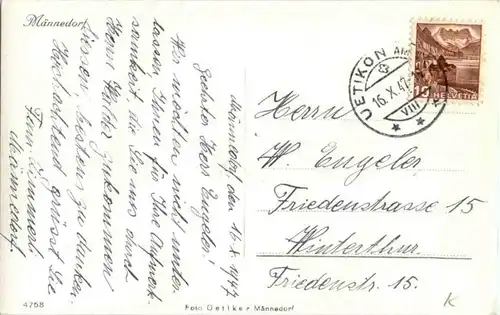 Männedorf
Männedorf, den 16. X. 1947
Geehrter Herr Engeler!
Wir möchten nicht unter-
lassen Ihnen für Ihre Aufmerk-
samkeit die Sie uns durch
Herrn Walder zukommen
liessen, bestens zu danken.
Hochachtend grüsst Sie
Fam. Zimmerli
Männedorf.
4758
Foto Oetiker Männedorf
UETIKON AM
16. X. 47
VIII
10
HELVETIA
Herrn
W. Engeler
Friedenstrasse 15
Winterthur.
Friedenstr. 15.
K